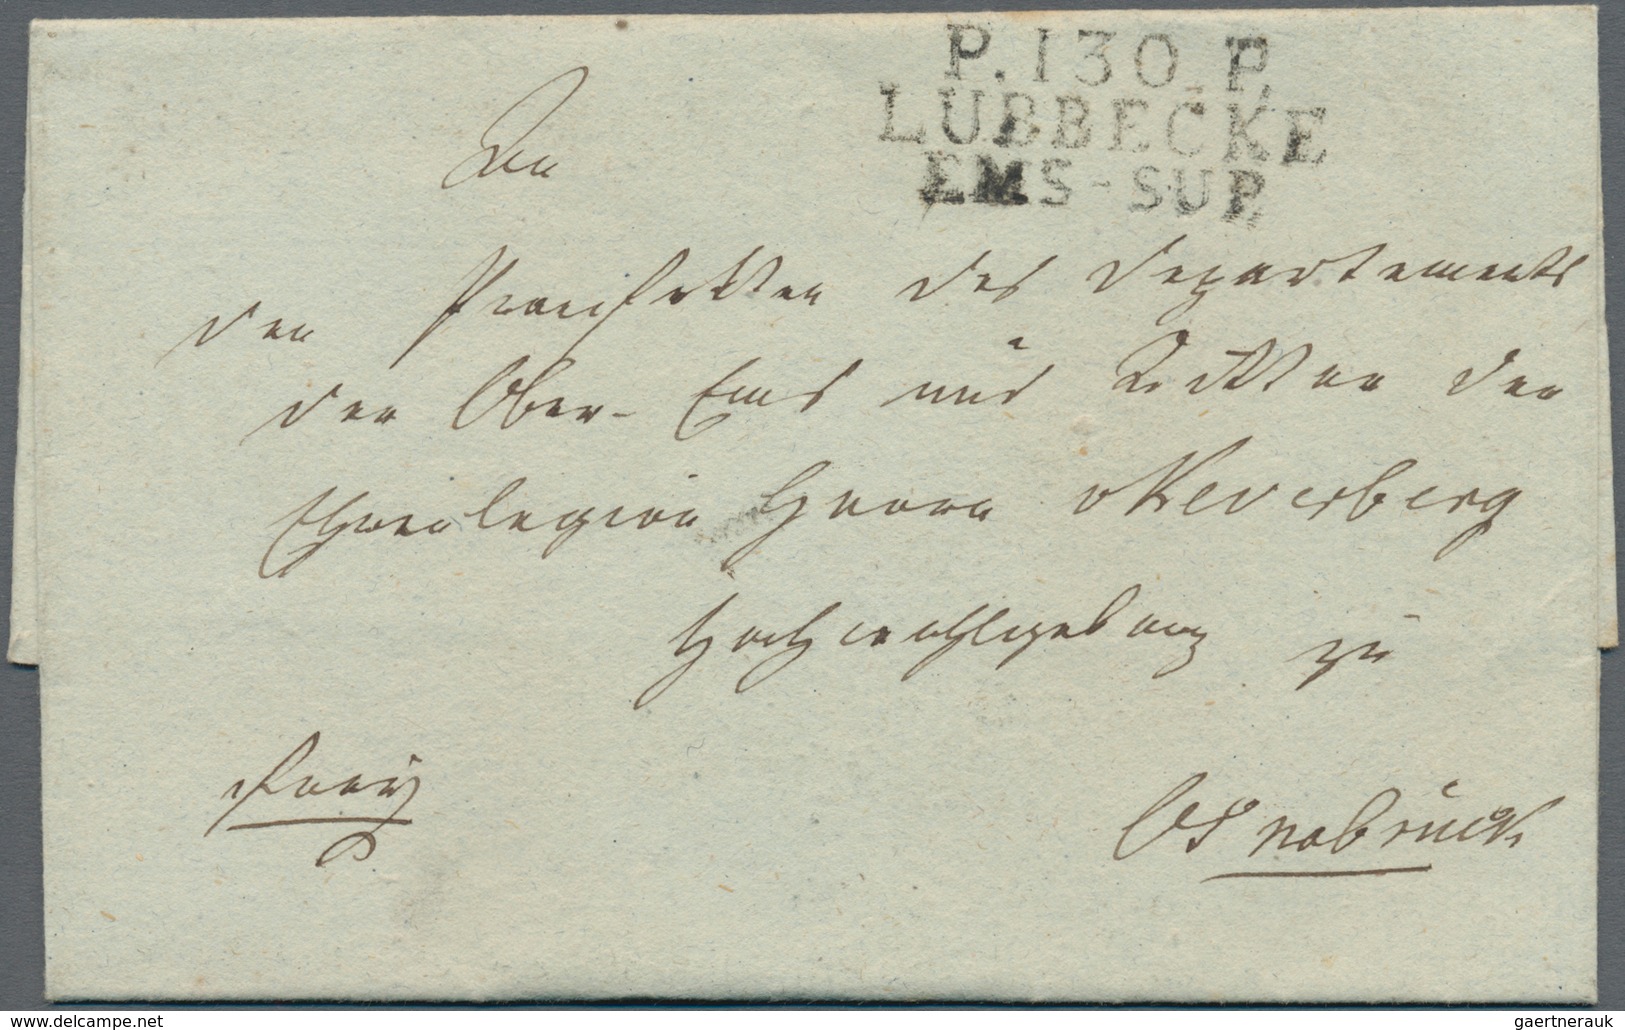 P. 130. P.
LUBBECKE
EMS-SUP.
An
den Praefekten des Departements
der Ober-Ems und Ritter der
Ehrenlegion Herrn Keverberg
Hochwohlgeborn zu
Osnabrück
www.delcampe.net
gaertnerauk